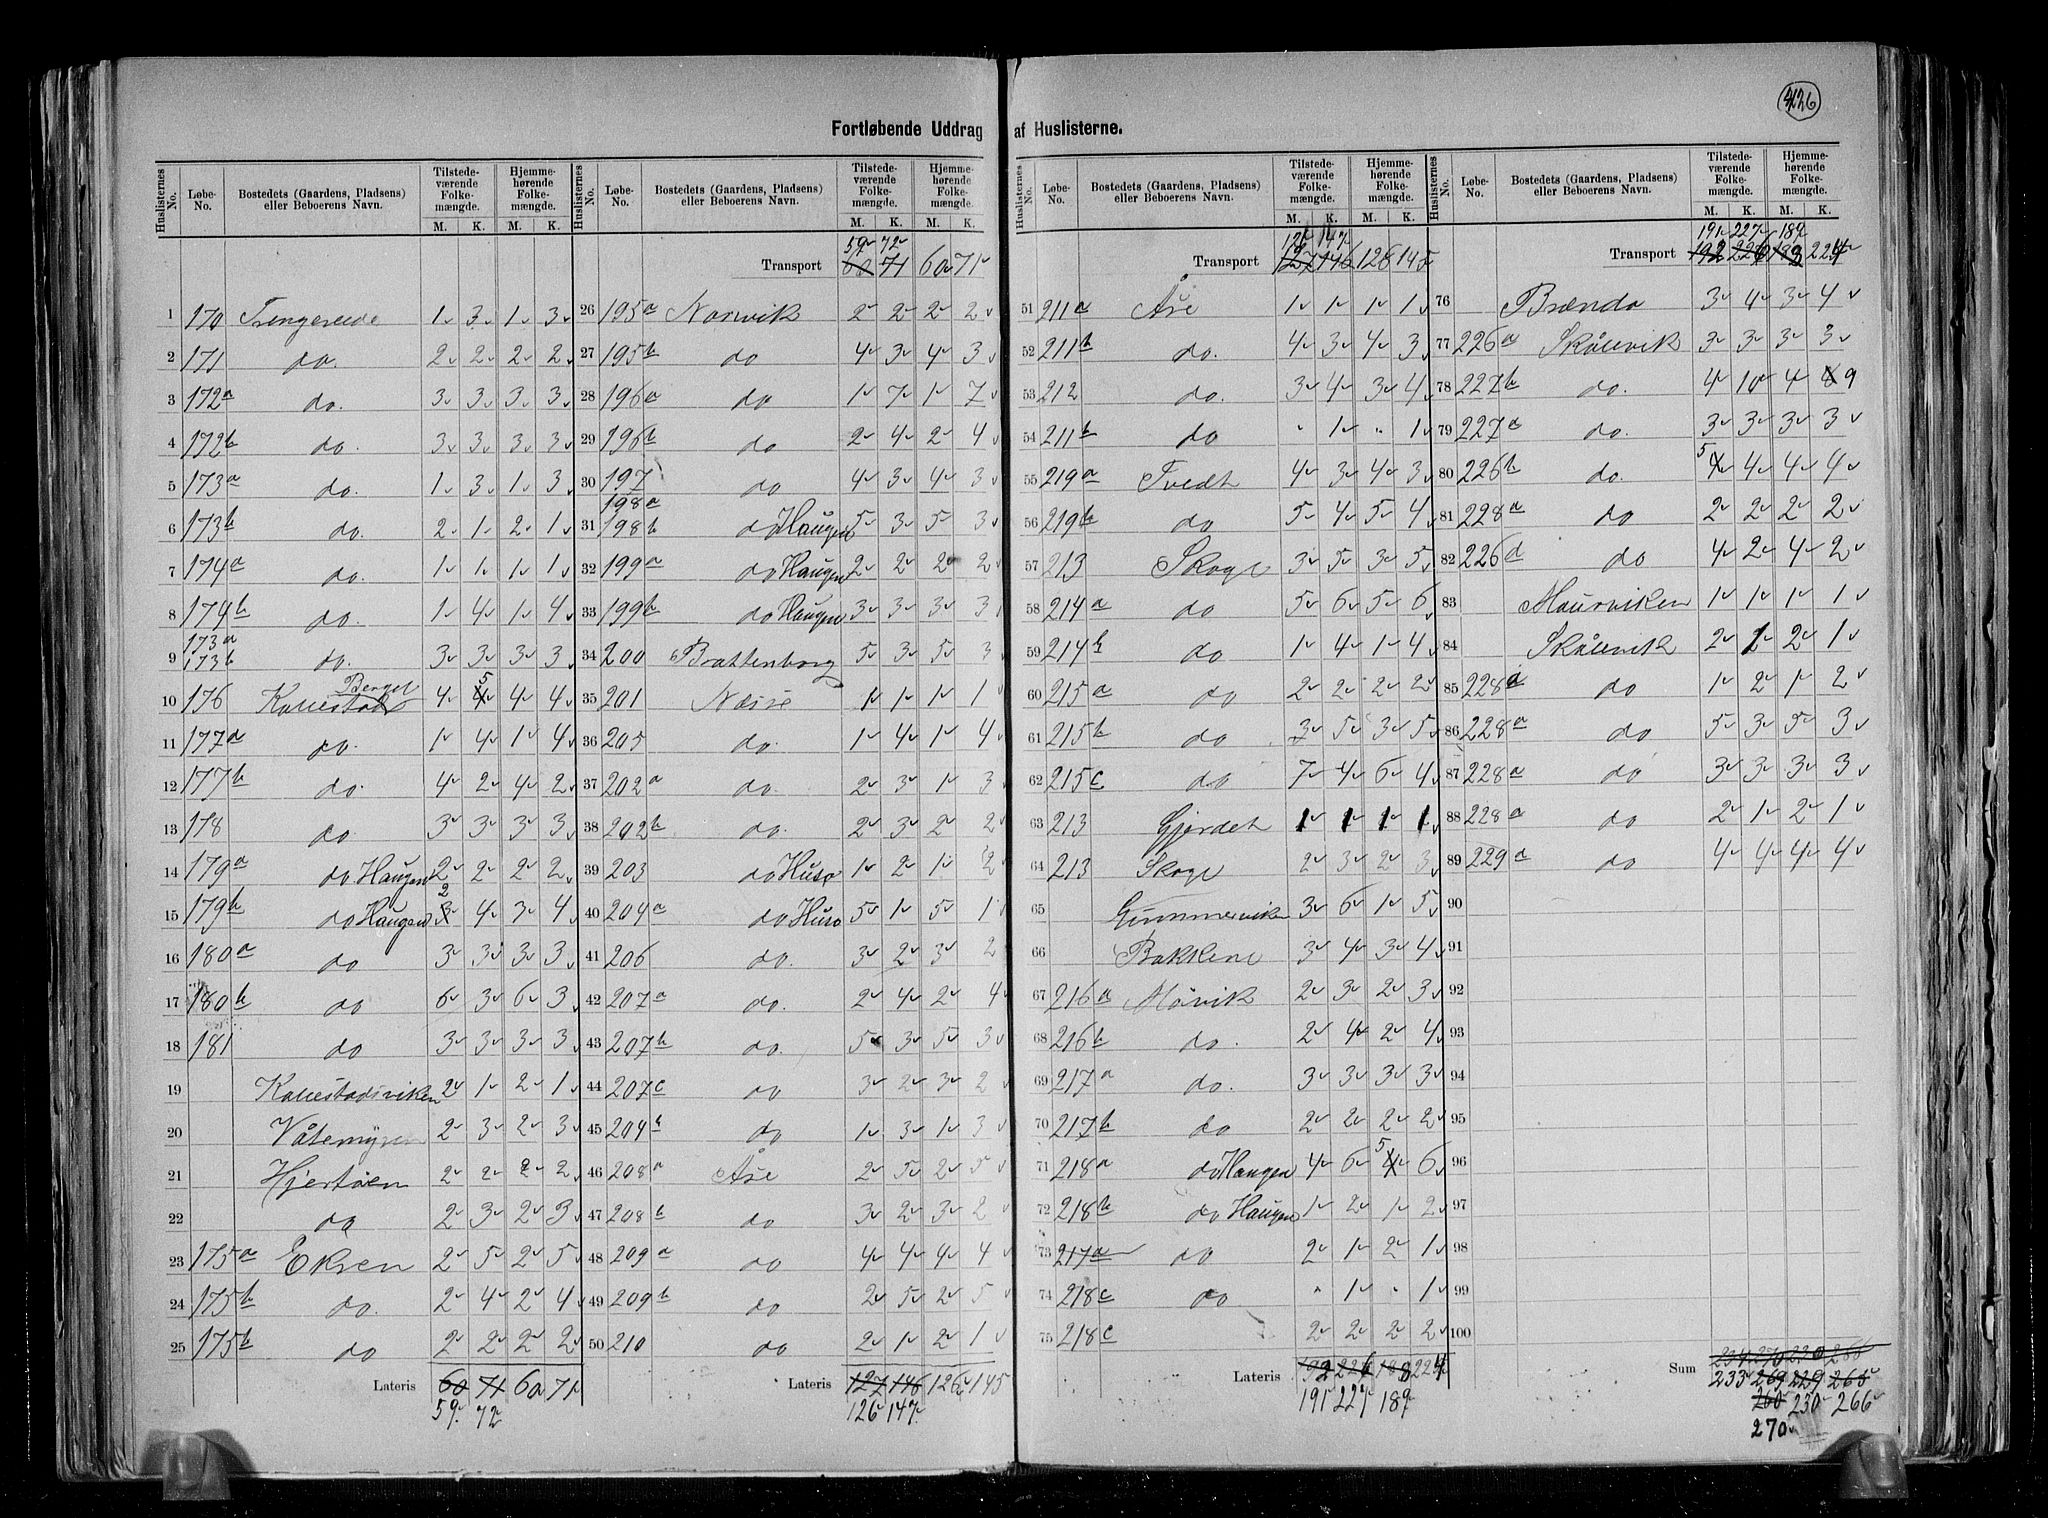 426
Fortløbende Uddrag af Huslisterne.
Huslisternes No. Løbe-No. Bostedets (Gaardens, Pladsens) eller Beboerens Navn. Tilstedeværende Folkemængde. M. K. Hjemmehørende Folkemængde. M. K.
1 170 Trengereide 1 3 1 3
2 171 do. 2 2 2 2
3 172a do. 3 3 3 3
4 172b do. 3 3 3 3
5 173a do. 1 3 1 3
6 173b do. 2 1 2 1
7 174a do. 1 1 1 1
8 174b do. 1 4 1 4
9 173a 173b do. 3 3 3 3
10 176 Berget 4 5 4 4
11 177a do. 1 4 1 4
12 177b do. 4 2 4 2
13 178 do 3 3 3 3
14 179a do Haugen 2 2 2 2
15 179b do Haugen 2 4 3 4
16 180a do 3 3 3 3
17 180b do 6 3 6 3
18 181 do 3 3 3 3
19 2 1 2 1
20 Våtemyren 2 3 2 3
21 Hjertøen 2 2 2 2
22 do 2 3 2 3
23 175a Eknen 2 5 2 5
24 175b do. 2 4 2 4
25 175b do 2 2 2 2
Lateris 60 71 60 71
59 72
Huslisternes No. Løbe-No. Bostedets (Gaardens, Pladsens) eller Beboerens Navn. Tilstedeværende Folkemængde. M. K. Hjemmehørende Folkemængde. M. K.
59 72
Transport 60 71 60 71
26 195a Norvik 2 2 2 2
27 195b do 4 3 4 3
28 196a do 1 7 1 7
29 196b do 2 4 2 4
30 197 do 4 3 4 3
31 198a 198b do Haugen 5 3 5 3
32 199a do Haugen 2 2 2 2
33 199b do Haugen 3 3 3 3
34 200 Brattenborg 5 3 5 3
35 201 Næsse 1 1 1 1
36 205 do. 1 4 1 4
37 202a do. 2 3 1 3
38 202b do. 2 3 2 2
39 203 do Huso 1 2 1 2
40 204a do Huso 5 1 5 1
41 206 do. 3 2 3 2
42 207a do. 2 4 2 4
43 207b do. 5 3 5 3
44 207c do 3 2 3 2
45 204b do 1 3 1 3
46 208a Åse 2 5 2 5
47 208b do 3 2 3 2
48 209a do 4 4 4 4
49 209b do 2 5 2 5
50 210 do 2 1 2 1
Lateris 127 146 126 145
126 147
Huslisternes No. Løbe-No. Bostedets (Gaardens, Pladsens) eller Beboerens Navn. Tilstedeværende Folkemængde. M. K. Hjemmehørende Folkemængde. M. K.
126 147
Transport 127 146 126 145
51 211a Åse 1 1 1 1
52 211b do. 4 3 4 3
53 212 do. 3 4 3 4
54 211b do " 1 " 1
55 219a Tvedt 4 3 4 3
56 219b do 5 4 5 4
57 213 Skoge 3 5 3 5
58 214a do 5 6 5 6
59 214b do 1 4 1 4
60 215a do 2 2 2 2
61 215b do 3 5 3 5
62 215c do 7 4 6 4
63 213 Gjerdet 1 1 1 1
64 213 Skoge 2 3 2 3
65 Gummerviken 3 6 1 5
66 Bakkene 3 4 3 4
67 216a Møvik 2 3 2 3
68 216b do. 2 4 2 4
69 217a do. 3 3 3 3
70 217b do 2 2 2 2
71 218a do Haugen 4 6 5 6
72 218b do Haugen 1 2 1 2
73 217a do 2 1 2 1
74 218c do " 1 " 1
75 218c 2 2 2 2
Lateris 192 226 188 224
191 227 189
Huslisternes No. Løbe-No. Bostedets (Gaardens, Pladsens) eller Beboerens Navn. Tilstedeværende Folkemængde. M. K. Hjemmehørende Folkemængde. M. K.
191 227 189
Transport 192 226 188 224
76 Brændo 3 4 3 4
77 226a Skålevik 3 3 3 3
78 227b do. 4 10 4 9
79 227a do. 3 3 3 3
80 226b do. 5 4 4 4
81 228a do 2 2 2 2
82 226d do 4 2 4 2
83 Maurviken 1 1 1 1
84 Skålevik 2 1 2 1
85 228d do 1 2 1 2
86 228a do 5 3 5 3
87 228a do 3 3 3 3
88 228a do 2 1 2 1
89 229a do 4 4 4 4
90
91
92
93
94
95
96
97
98
99
100
Sum 234 270 230 266
233 269 229 265
260 230 266
270